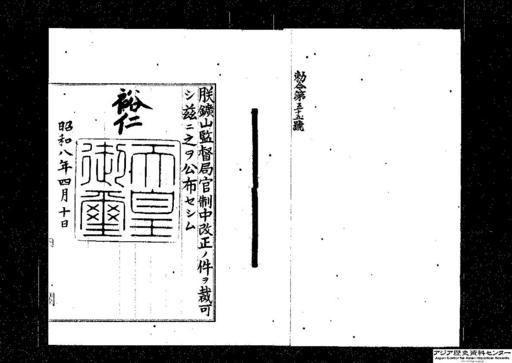 勅令第五十五號
朕鑛山監督局官制中改正ノ件ヲ裁可
シ茲ニ之ヲ公布セシム
裕仁
天皇
御璽
昭和八年四月十日
アジア歴史資料センター
Japan Center for Asian Historical Records